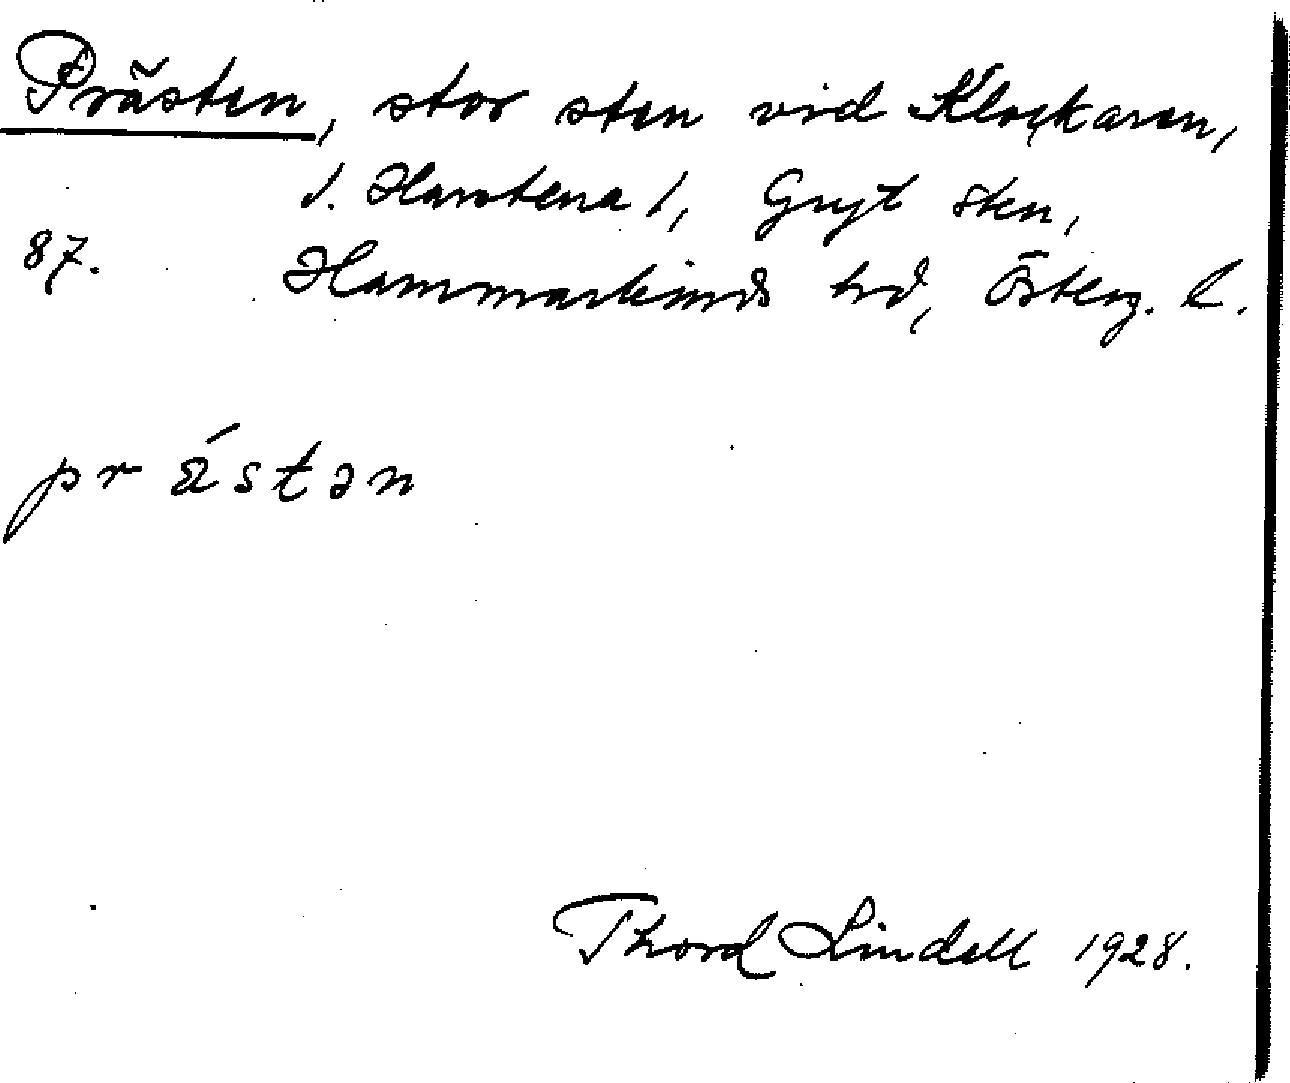 Prästen, stor sten vid Klockaren,
1. Harstena 1, Gryt skn,
87. Hammarkinds hd, Österg. l.
præ´stən
Thord Lindell 1928.